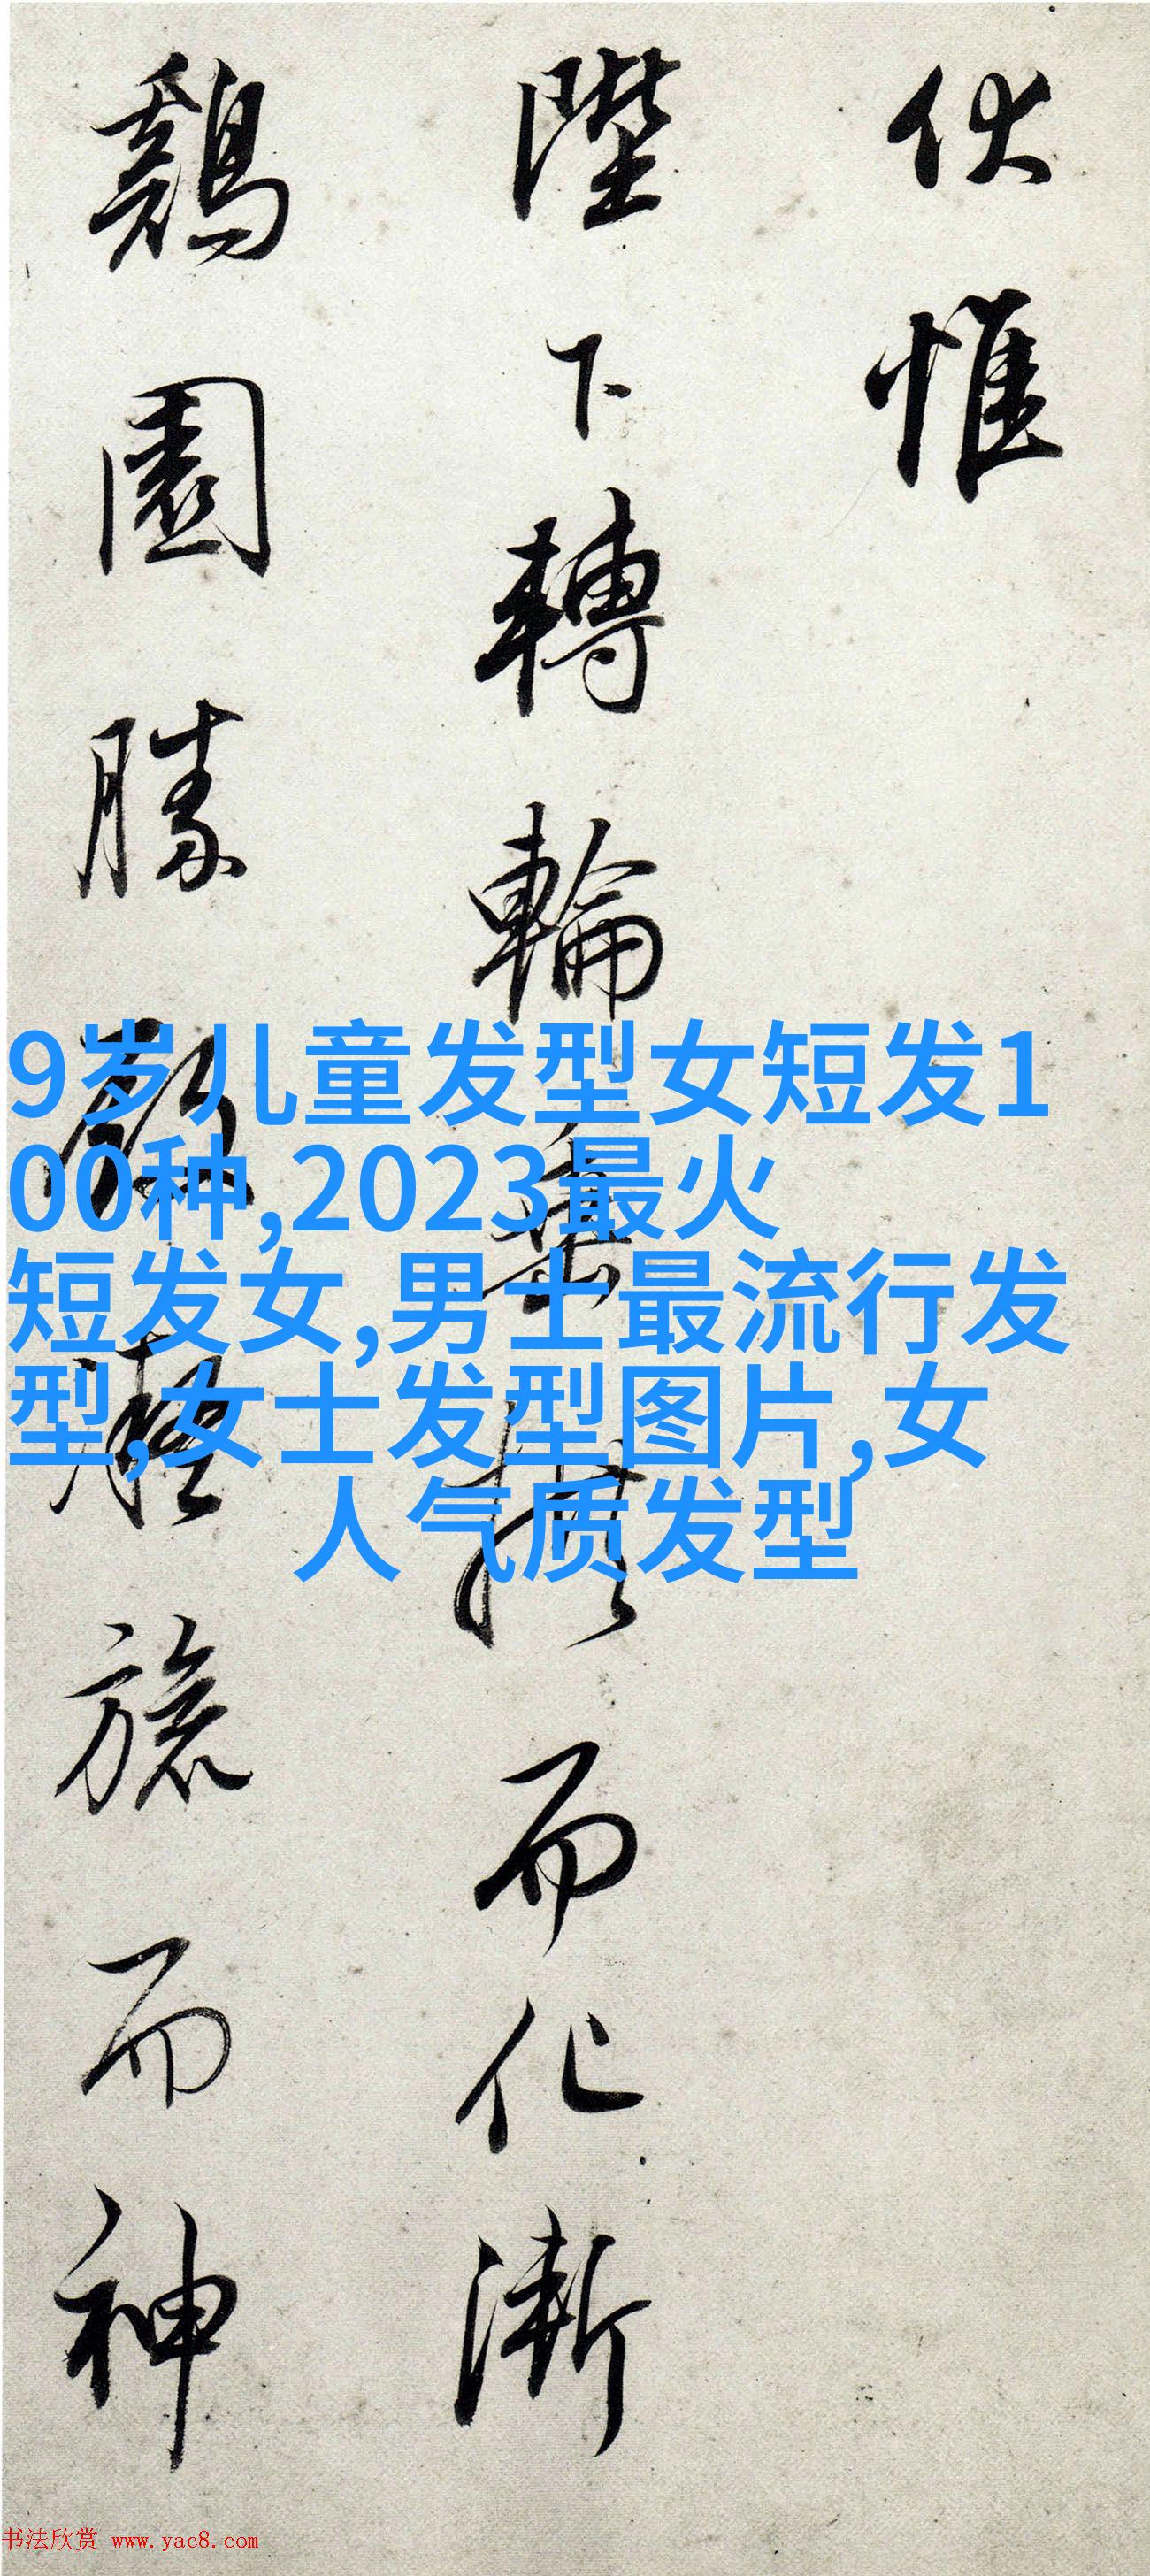 伏惟
陛下轉輪垂拱而化漸
鷄園勝殿凝旒而神
9岁儿童发型女短发1
00种,2023最火
短发女,男士最流行发
型,女士发型图片,女
人气质发型
书法欣赏 www.yac8.com